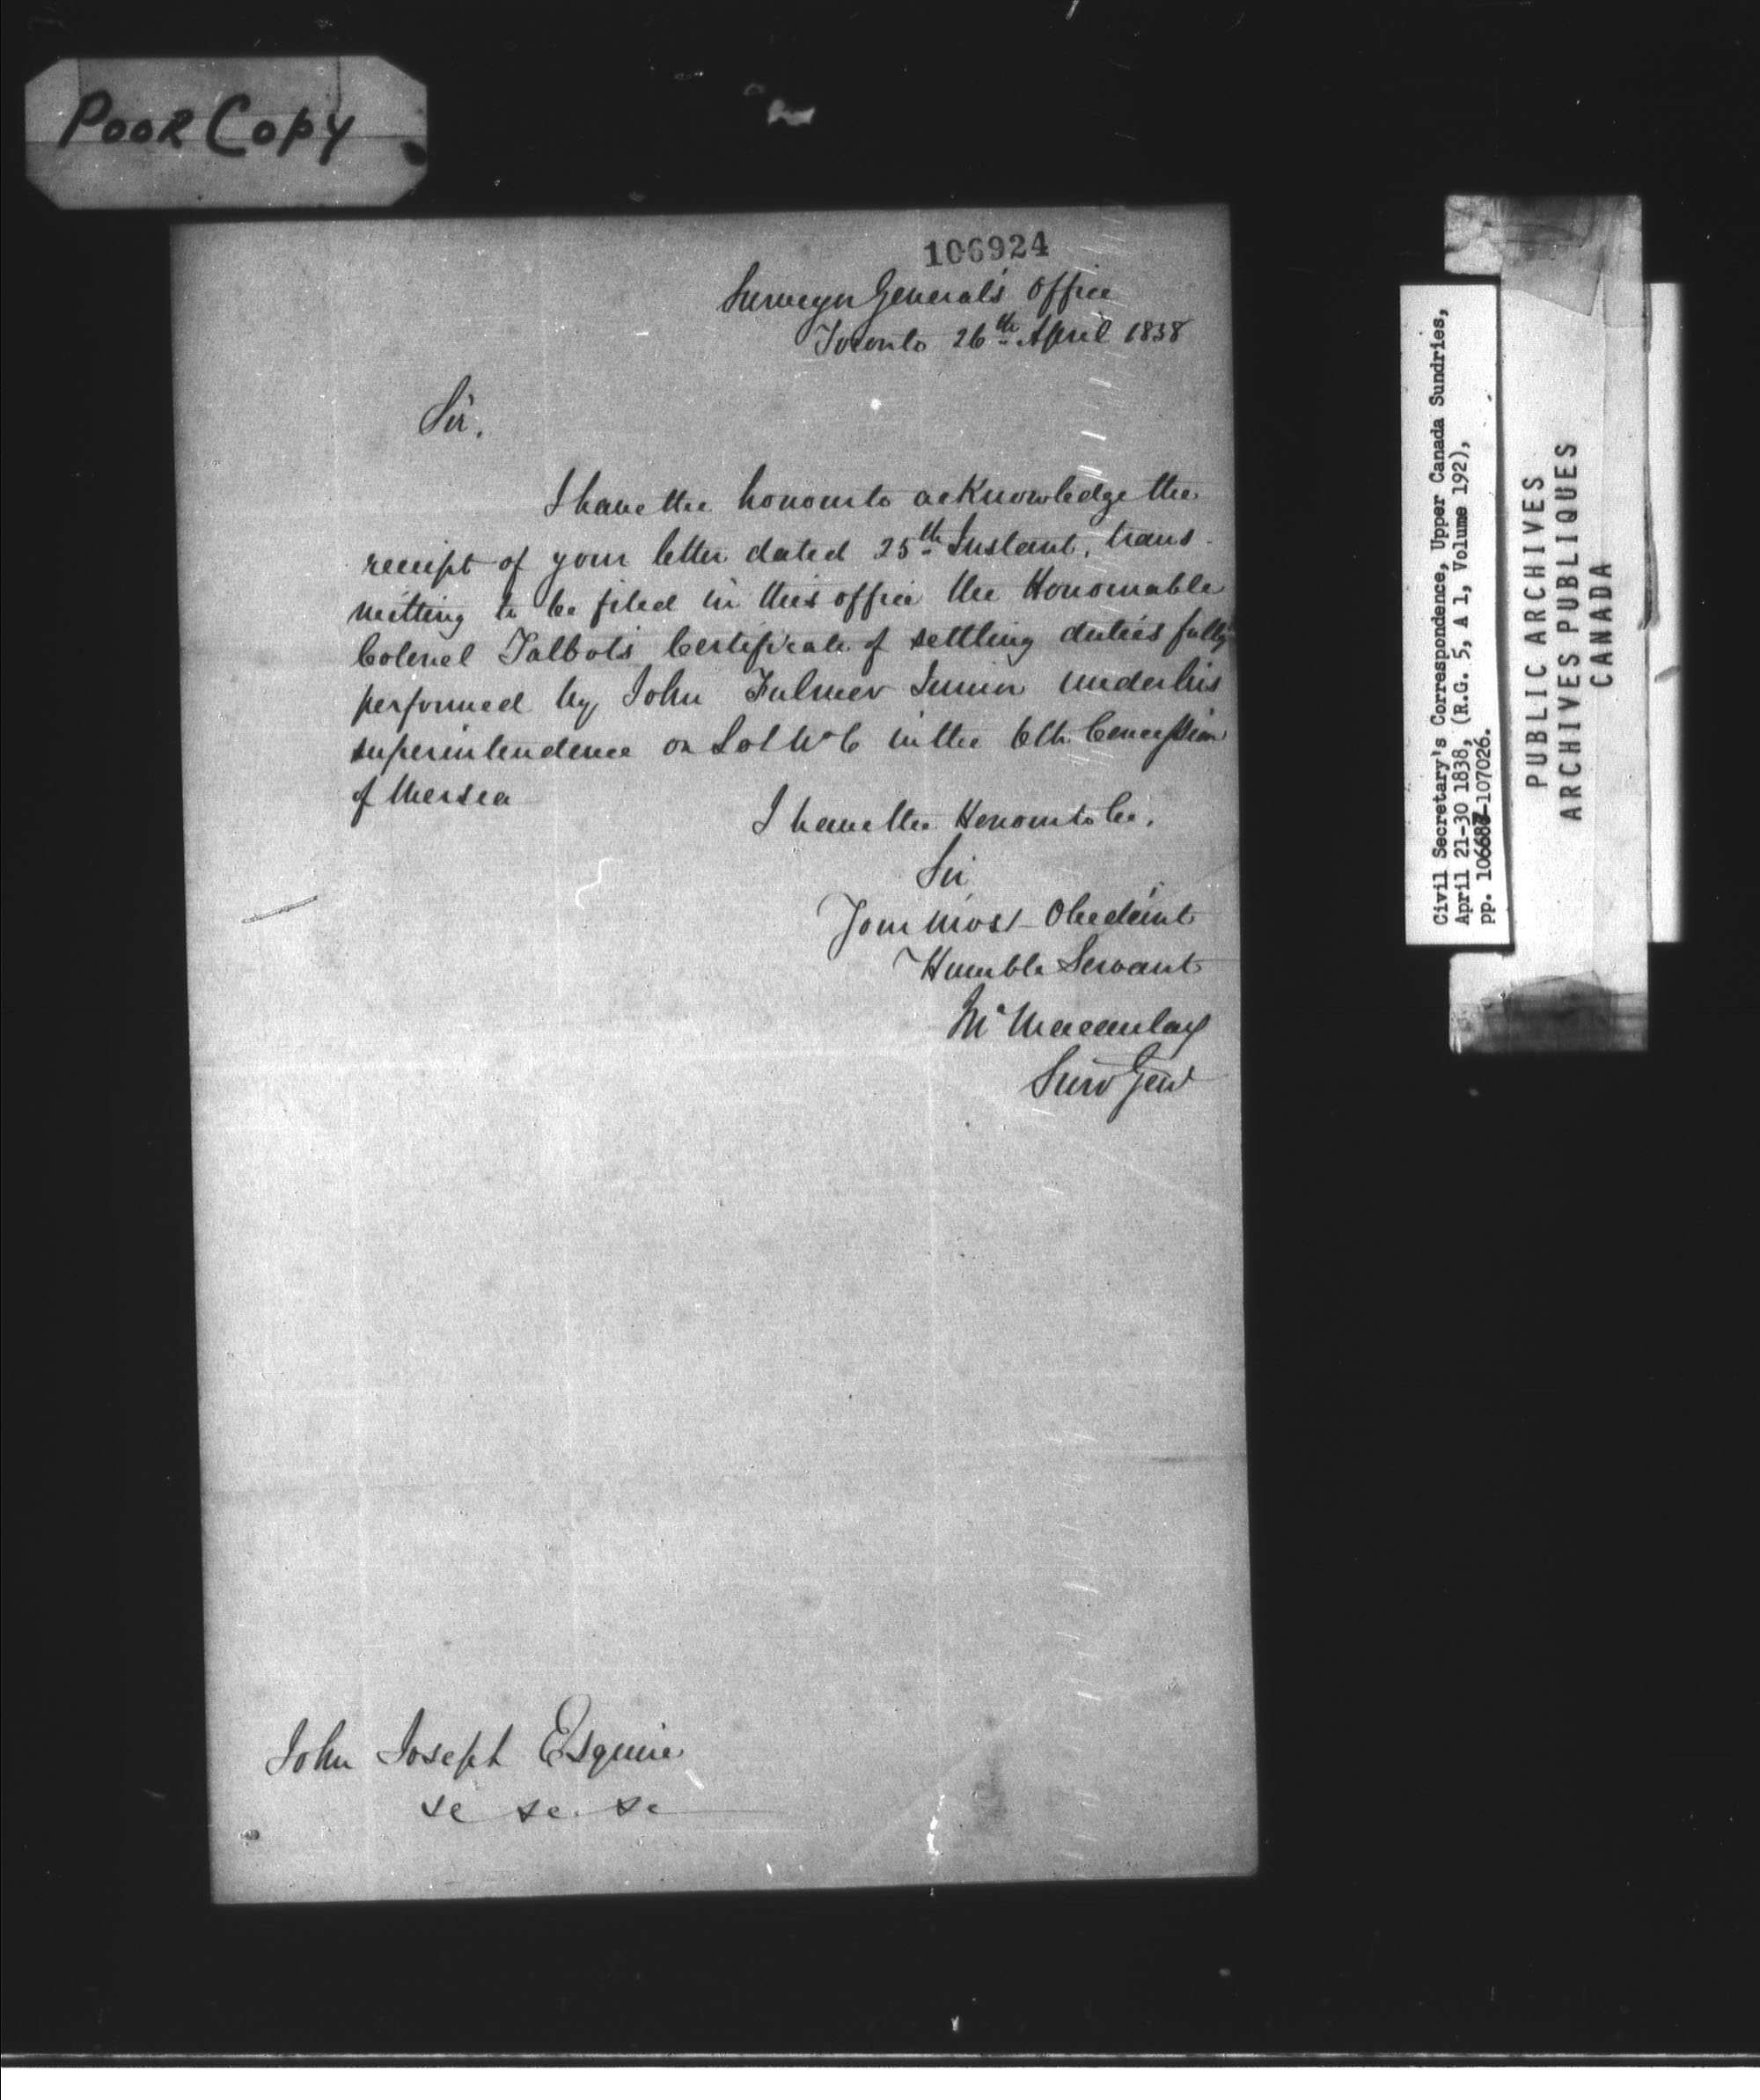 Poor Copy
106924
Surveyor General's Office
Toronto 26th April 1838
Sir,
I have the honour to acknowledge the
receipt of your letter dated 25th Instant, trans-
mitting to be filed in this office the Honourable
Colonel Talbot's Certificate of settling duties fully
performed by John Fulmer Junior under his
superintendence on Lot No 6 in the 6th Concession
of Mersea
I have the Honour to be,
Sir
Your most Obedient
Humble Servant
Macaulay
Surv Genl
John Joseph Esquire
&c &c. &c
Civil Secretary's Correspondence, Upper Canada Sundries,
April 21-30 1838, (R.G. 5, A 1, Volume 192),
pp. 106687-107026.
PUBLIC ARCHIVES
ARCHIVES PUBLIQUES
CANADA